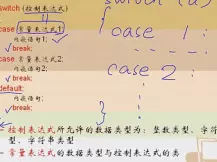 switch (控制表达式)
case 常量表达式1:
内嵌语句1;
break;
case 常量表达式2:
内嵌语句2;
break;
default:
内嵌语句3;
break;
控制表达式所允许的数据类型为: 整数类型、字符
型、字符串类型
常量表达式的数据类型与控制表达式的类
switch (a)
case 1:
case 2: